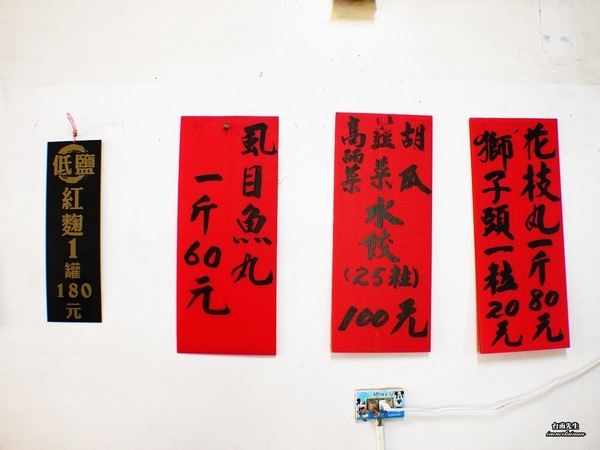 低鹽
紅麴1罐180元
虱目魚丸
一斤60元
胡瓜
韮菜
高丽菜
水餃
(25粒)
100元
花枝丸一斤80元
獅子頭一粒20元
台南先生